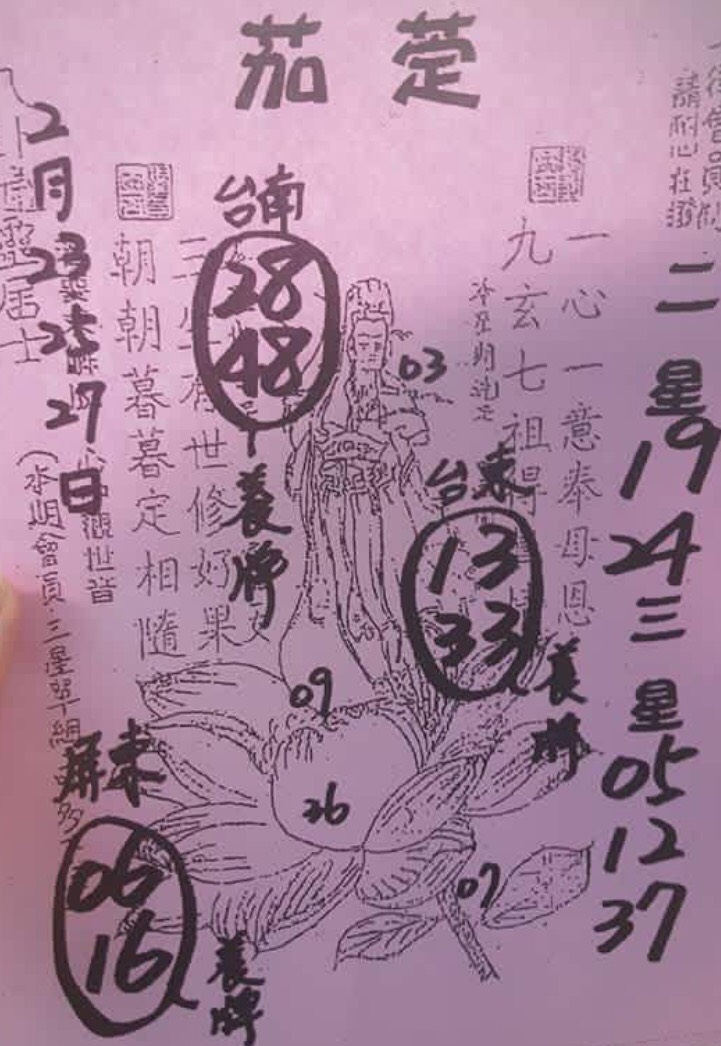 茄萣
一心一意奉母恩
九玄七祖得
二星
19
24
三星
05
12
37
台南
28
48
養牌
03
台東
13
33
養牌
09
26
07
三生有世修好果
朝朝暮暮定相隨
2月
23
25
27
日
觀世音
屏東
06
16
養牌